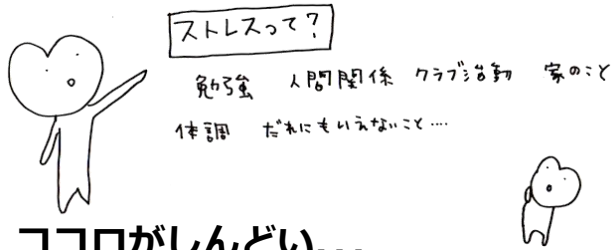 ストレスって?
勉強 人間関係 クラブ活動 家のこと
体調 だれにもいえないこと....
ココロがしんどい...